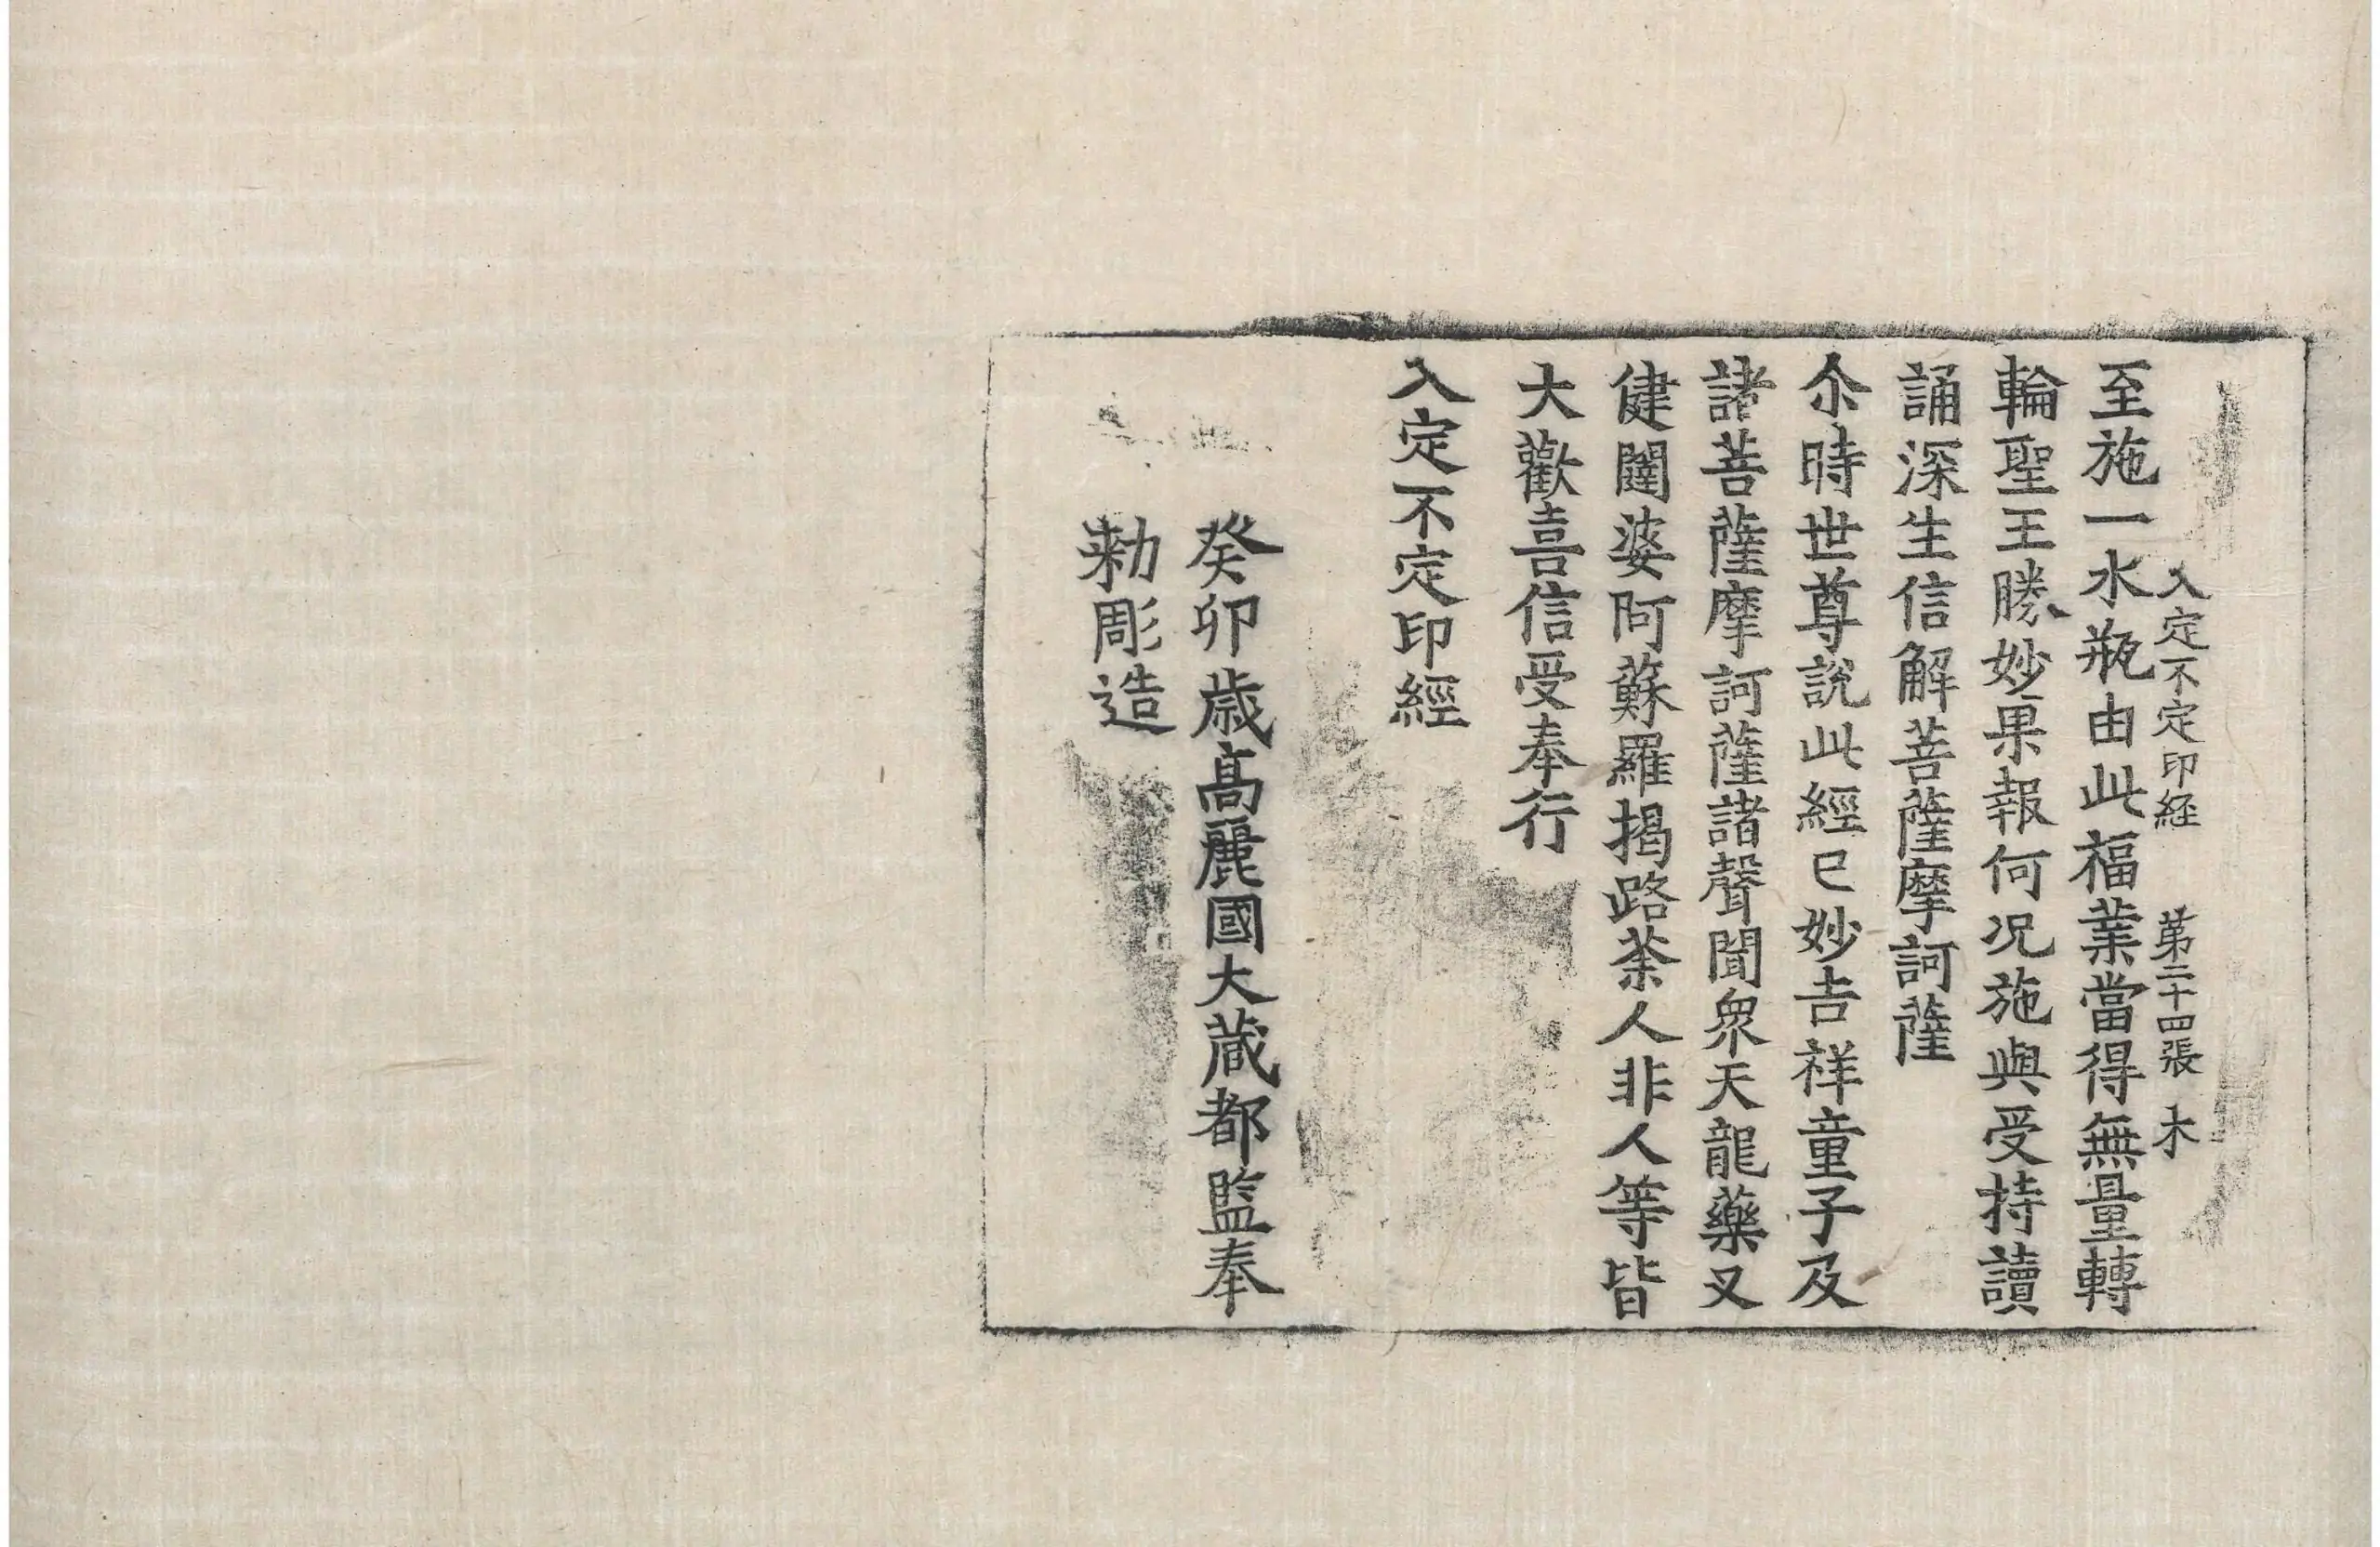 入定不定印経 第二十四張 木
至施一水瓶由此福業當得無量轉
輪聖王勝妙果報何况施與受持讀
誦深生信解菩薩摩訶薩
尒時世尊說此經已妙吉祥童子及
諸菩薩摩訶薩諸聲聞衆天龍藥叉
健闥婆阿蘇羅揭路荼人非人等皆
大歡喜信受奉行
入定不定印經
癸卯歳髙麗國大蔵都監奉
勑彫造